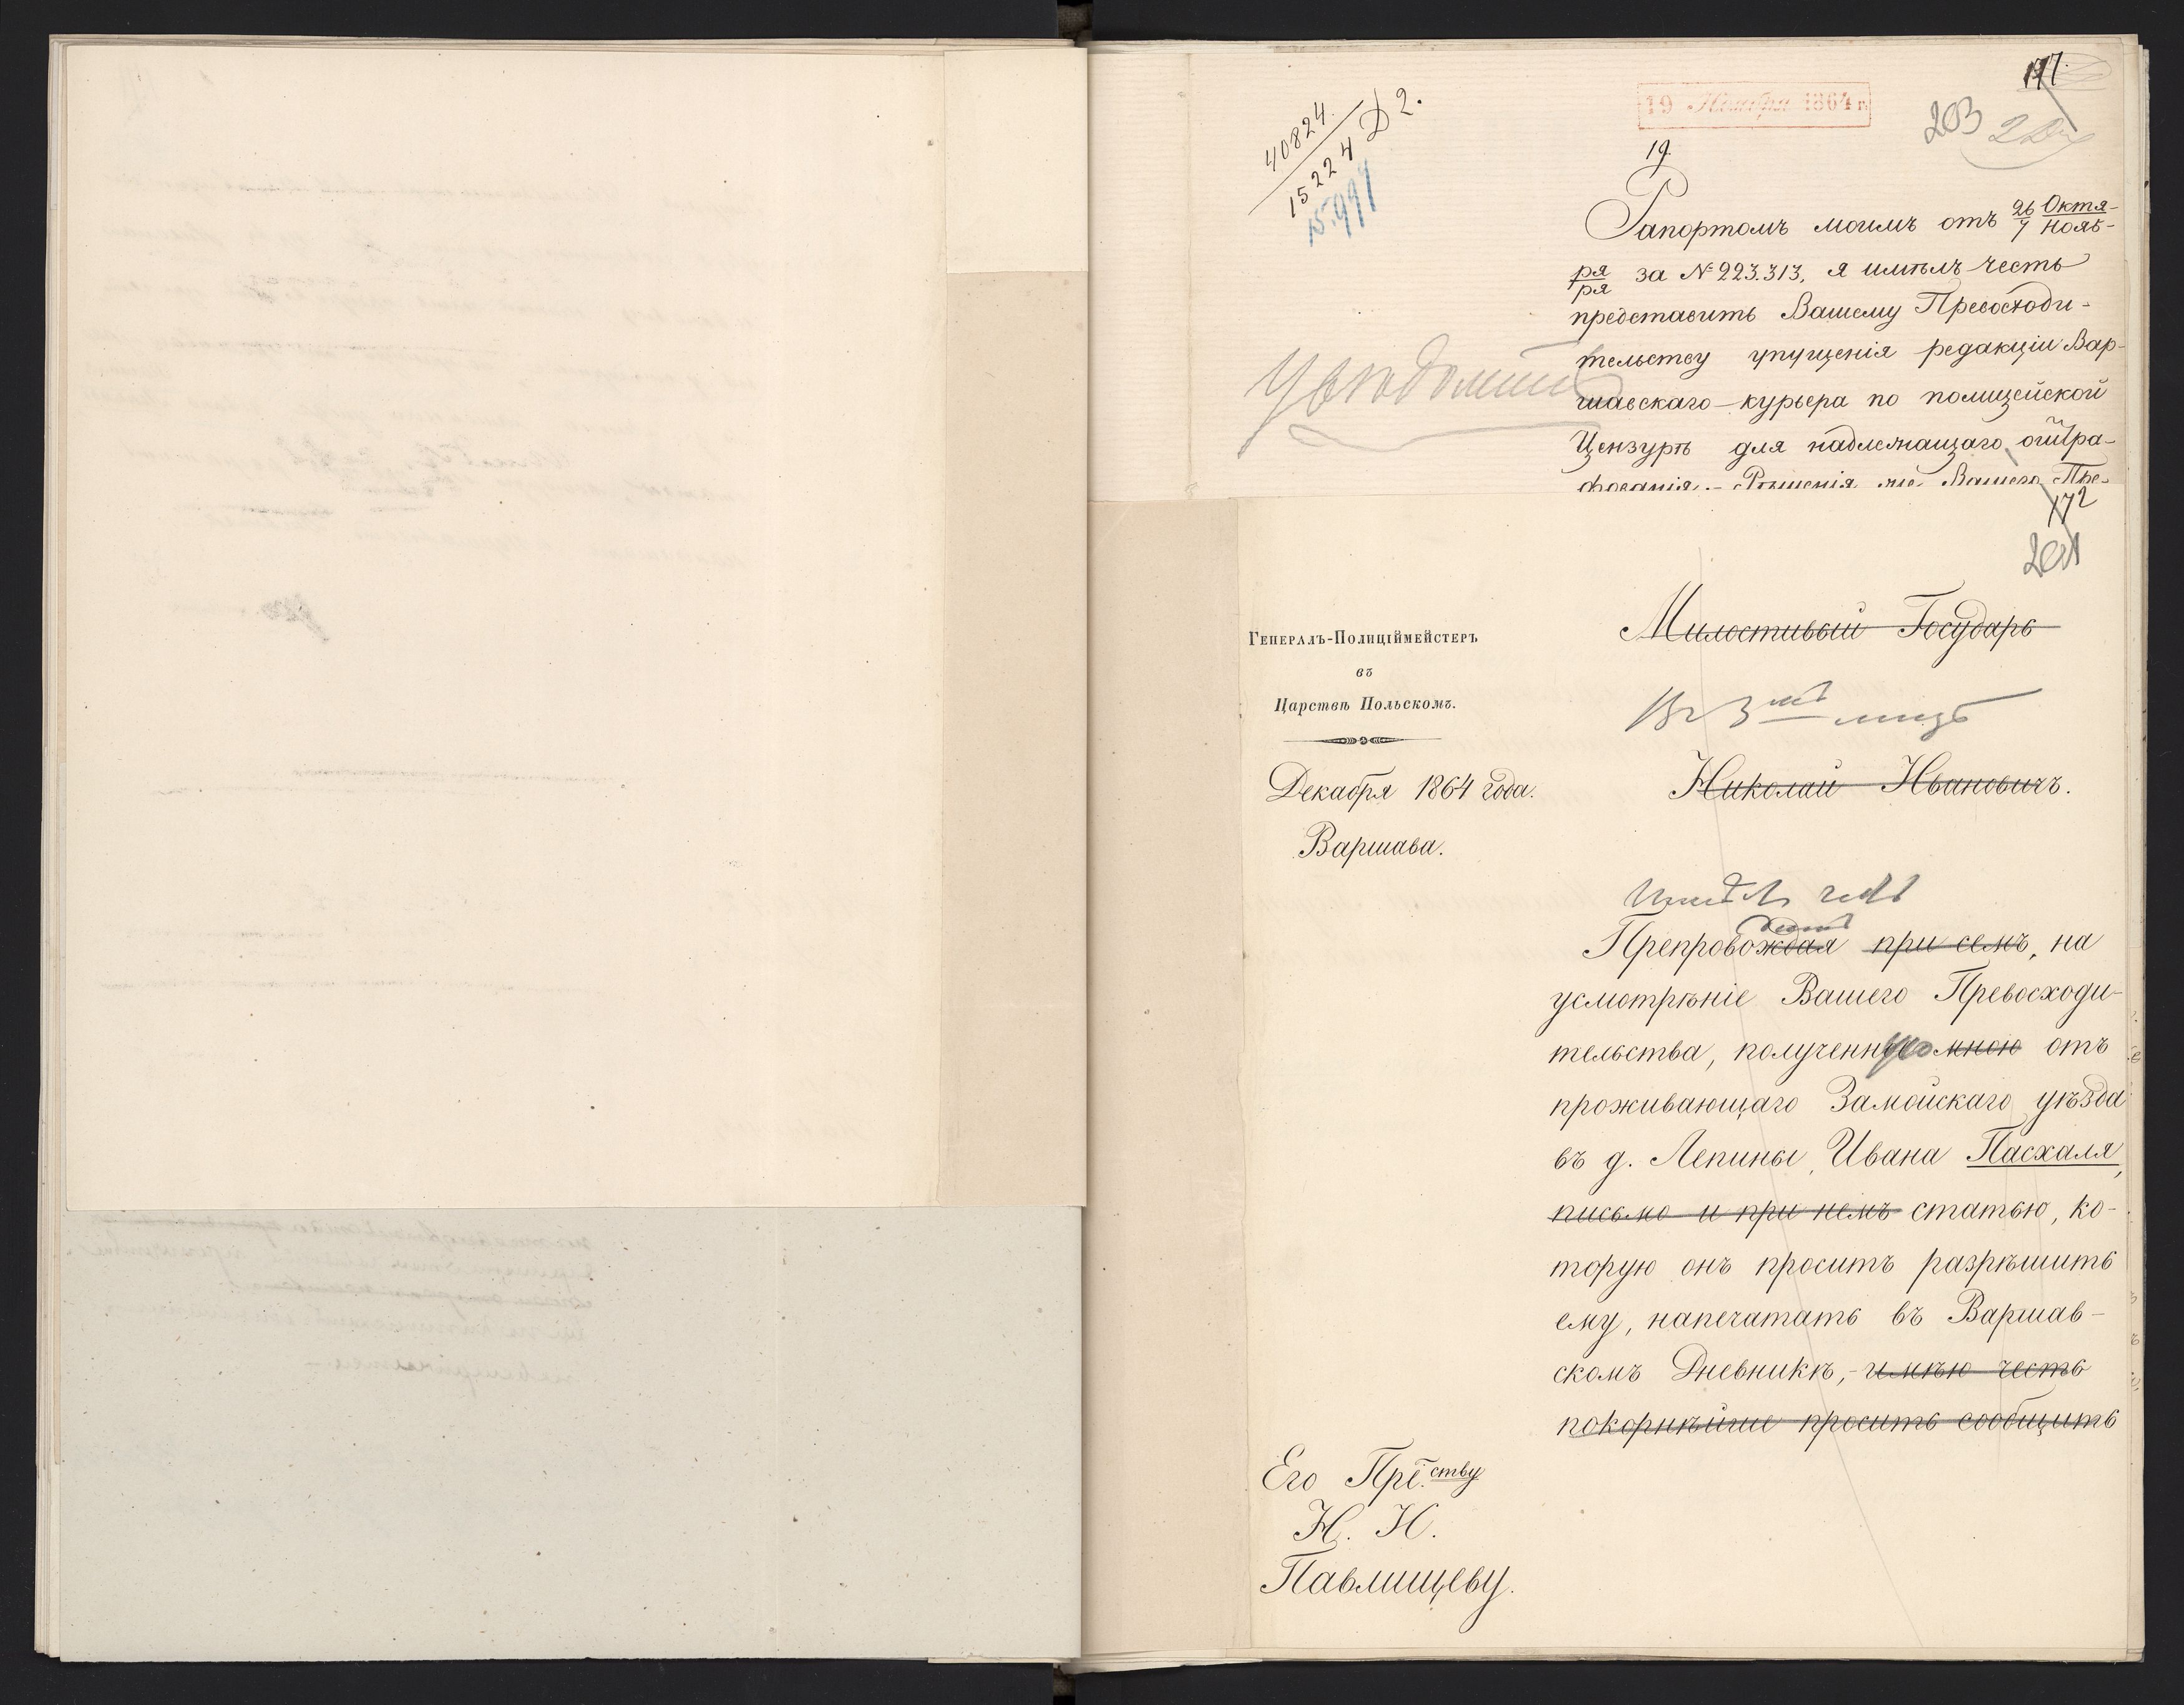 177.
203
19 Ноября 1864 г.
19.
40824.
15224 Д 2.
15.991
Рапортомъ моимъ отъ 26/7 Октя-/Нояб-
ря/ря за № 223.313, я имѣлъ честь
представить Вашему Превосходи-
тельству упущенія редакціи Вар-
шавскаго-курьера по полицейской
Цензурѣ для надлежащаго оштра-
фованія. - Рѣшенія же Вашего Пре-
Увѣдомить
172
204
Генералъ-Полиціймейстеръ
въ
Царствѣ Польскомъ.
Декабря 1864 года.
Варшава.
Милостивый Государь
Въ 3мъ лицѣ
Николай Ивановичъ.
Имѣю честь
Препровождая при семъ, на
усмотрѣніе Вашего Превосходи-
тельства, полученную мною отъ
проживающаго Замойскаго уѣзда
въ д. Лепины, Ивана Пасхаля,
письмо и при немъ статью, ко-
торую онъ проситъ разрѣшить
ему, напечатать въ Варшав-
скомъ Дневникѣ, - имѣю честь
покорнѣйше просить сообщить
Его Пре.ству
Н. И.
Павлищеву.